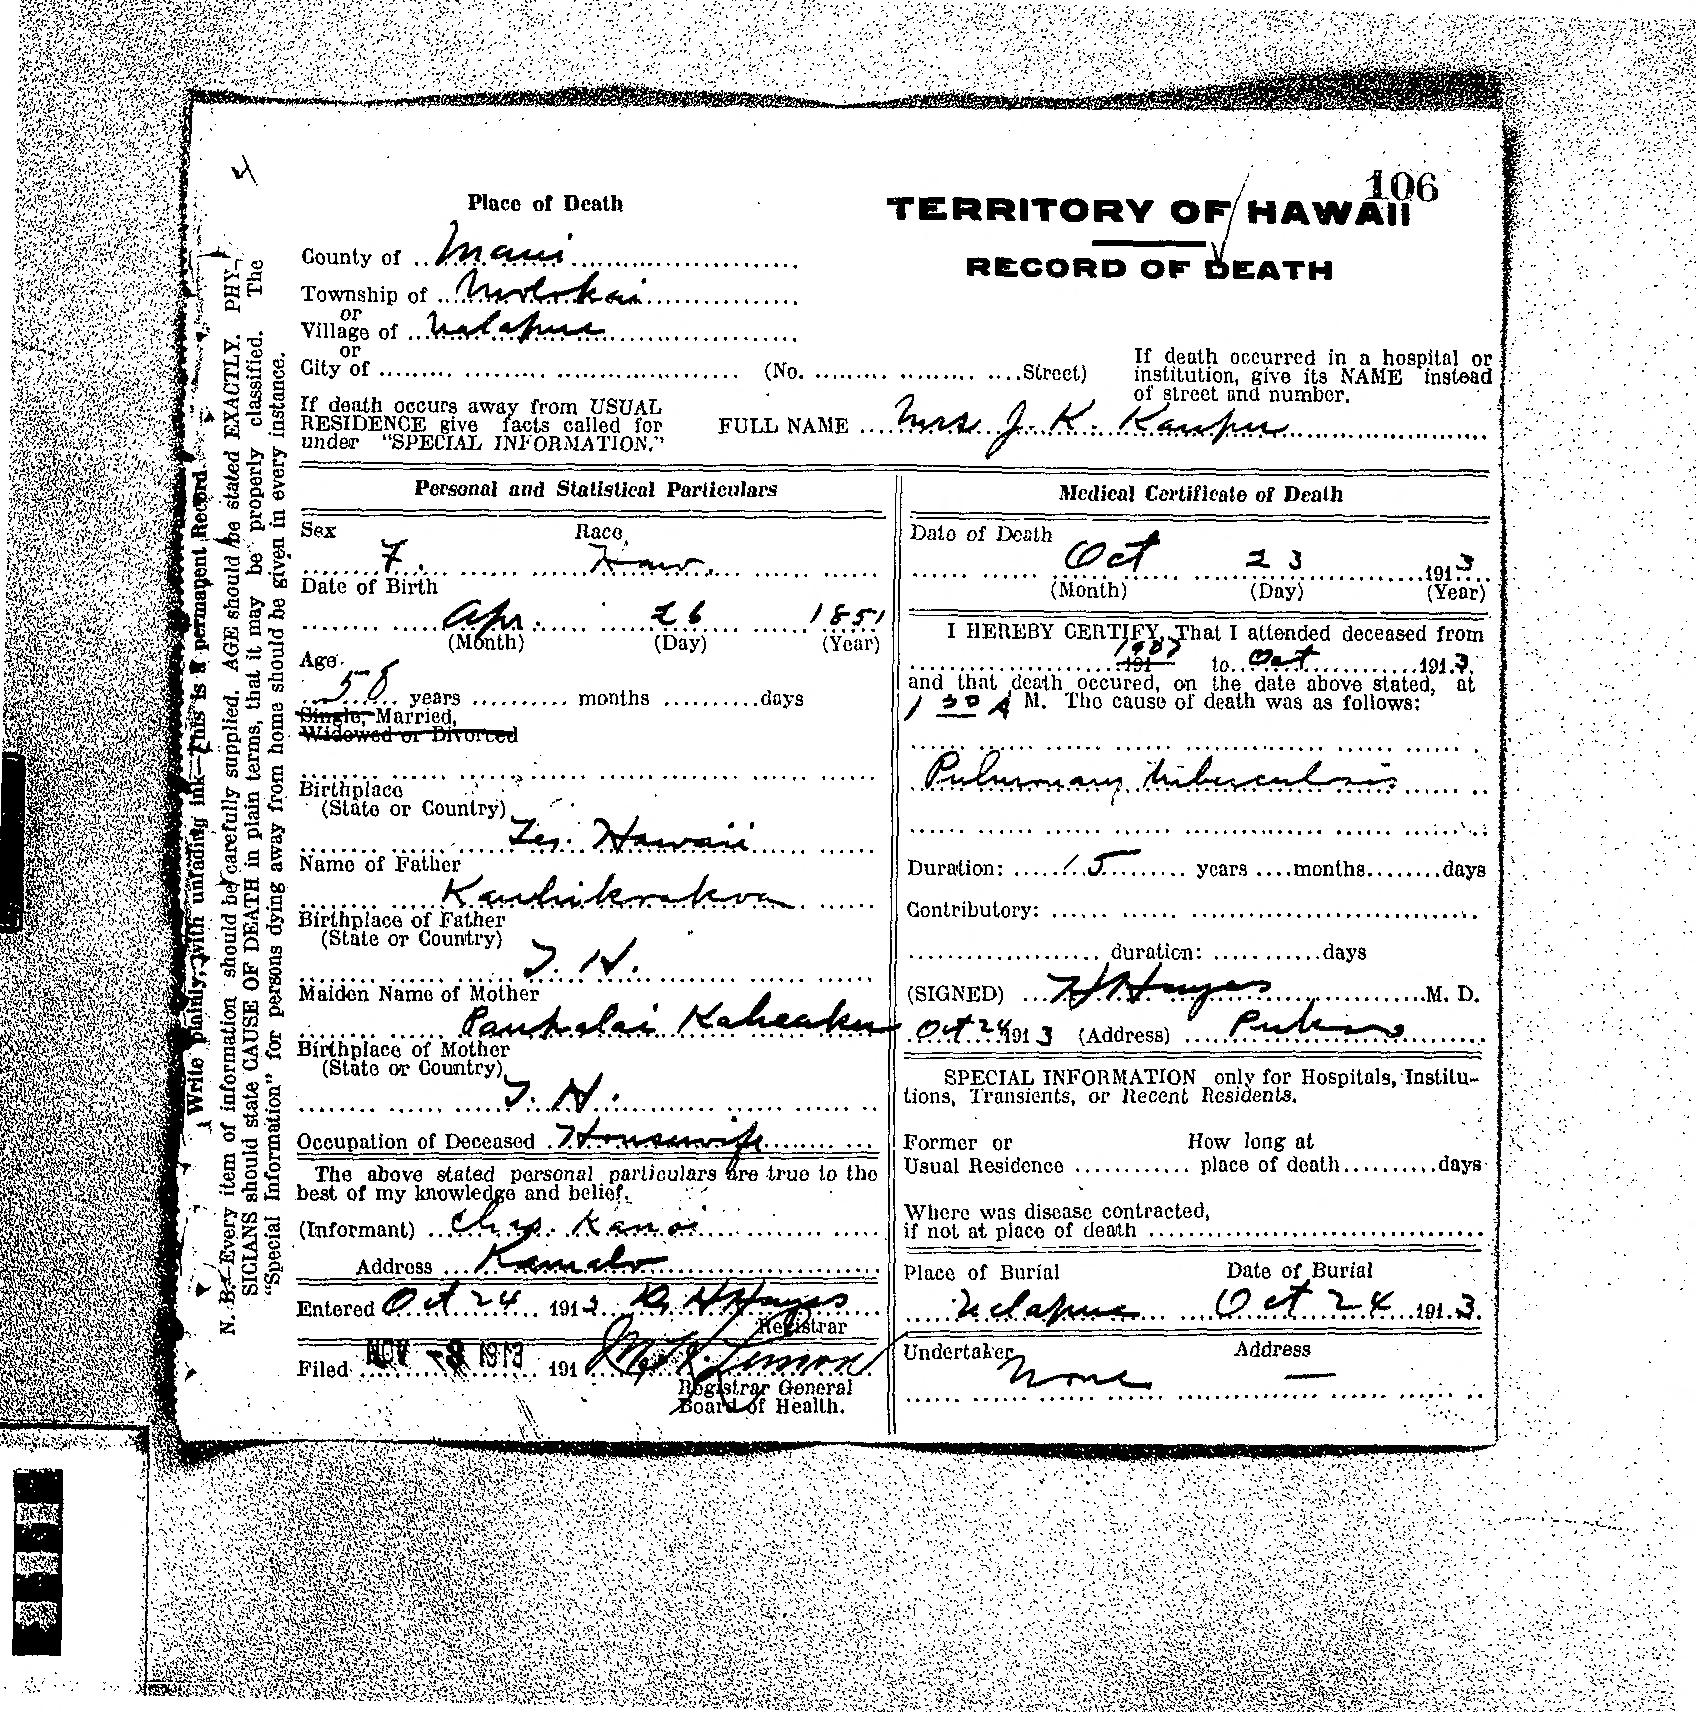 106
Place of Death
TERRITORY OF HAWAII
RECORD OF DEATH
County of Maui
Township of Molokai
or
Village of Ualapue
or
City of (No. Street)
If death occurred in a hospital or
institution, give its NAME instead
of street and number.
If death occurs away from USUAL
RESIDENCE give facts called for
under "SPECIAL INFORMATION."
FULL NAME Mrs J. K. Kaupu
Personal and Statistical Particulars
Sex Race
F. Haw.
Date of Birth
Apr. 26 1851
(Month) (Day) (Year)
Age
58 years months days
Single, Married,
Widowed or Divorced
Birthplace
(State or Country)
Ter. Hawaii
Name of Father
Birthplace of Father
(State or Country)
T. H.
Maiden Name of Mother
Birthplace of Mother
(State or Country)
T. H.
Occupation of Deceased Housewife
The above stated personal particulars are true to the
best of my knowledge and belief.
(Informant) Chas. Kanoi
Address Kamalo
Entered Oct 24 1913 Hayes
Registrar
Filed NOV -3 1913 191
Registrar General
Board of Health.
Medical Certificate of Death
Date of Death
Oct 23 1913
(Month) (Day) (Year)
I HEREBY CERTIFY, That I attended deceased from
191 to Oct 1913,
and that death occured, on the date above stated, at
1 30 A M. The cause of death was as follows:
Pulmonary tuberculosis
Duration: 15 years months days
Contributory:
duration: days
(SIGNED) Hayes M. D.
Oct 24 1913 (Address) Pukoo
SPECIAL INFORMATION only for Hospitals, Institu-
tions, Transients, or Recent Residents.
Former or How long at
Usual Residence place of death days
Where was disease contracted,
if not at place of death
Place of Burial Date of Burial
Ualapue Oct 24 1913
Undertaker Address
None —
N. B.—Every item of information should be carefully supplied. AGE should be stated EXACTLY. PHY-
SICIANS should state CAUSE OF DEATH in plain terms, that it may be properly classified. The
"Special Information" for persons dying away from home should be given in every instance.
Write plainly, with unfading ink—This is a permanent Record